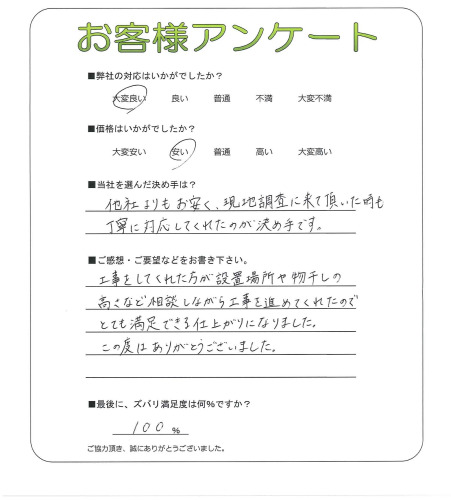 お客様アンケート
■弊社の対応はいかがでしたか？
大変良い 良い 普通 不満 大変不満
■価格はいかがでしたか？
大変安い 安い 普通 高い 大変高い
■当社を選んだ決め手は？
他社よりもお安く、現地調査に来て頂いた時も
丁寧に対応してくれたのが決め手です。
■ご感想・ご要望などをお書き下さい。
工事をしてくれた方が設置場所や物干しの
高さなど相談しながら工事を進めてくれたので
とても満足できる仕上がりになりました。
この度はありがとうございました。
■最後に、ズバリ満足度は何%ですか？
100 %
ご協力頂き、誠にありがとうございました。